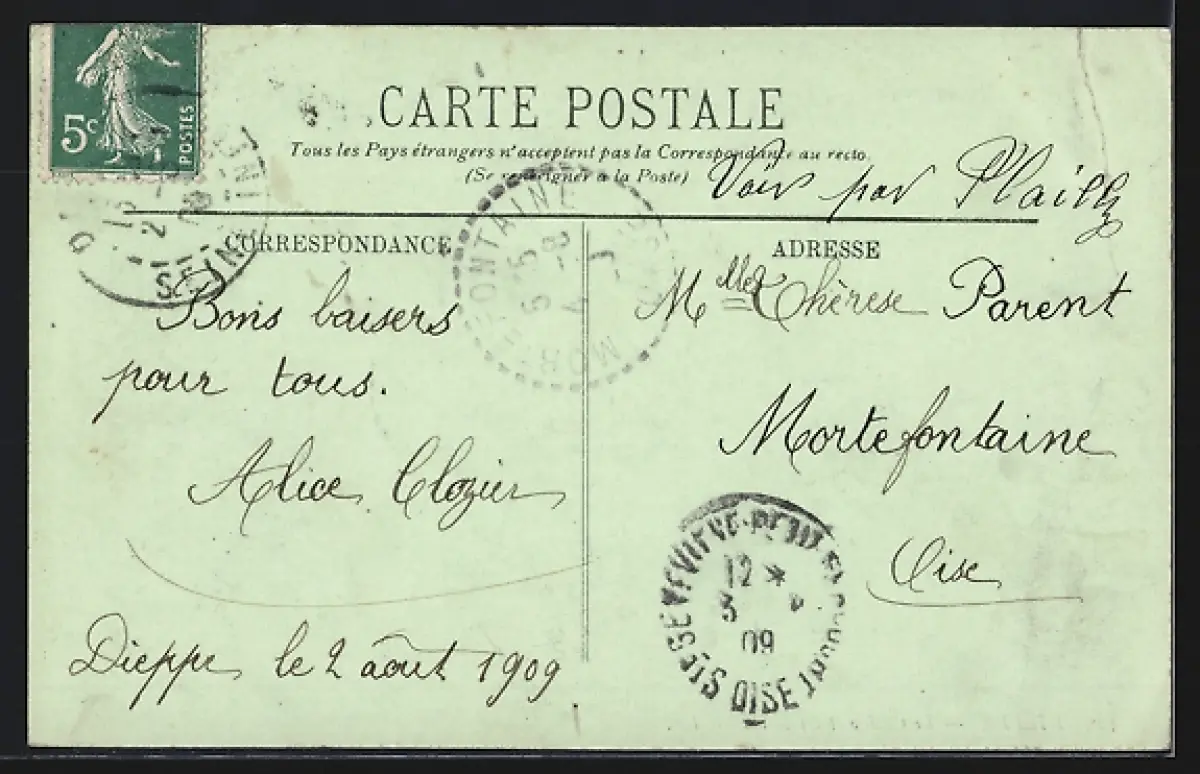 5c
POSTES
CARTE POSTALE
Tous les Pays étrangers n'acceptent pas la Correspondance au recto.
(Se renseigner à la Poste)
Voir par Plailly
CORRESPONDANCE
Bons baisers
pour tous.
Alice Clozier
Dieppe le 2 août 1909
ADRESSE
Mlle Thérèse Parent
Mortefontaine
Oise
MORTEFONTAINE
12 *
09
OISE
SEINE